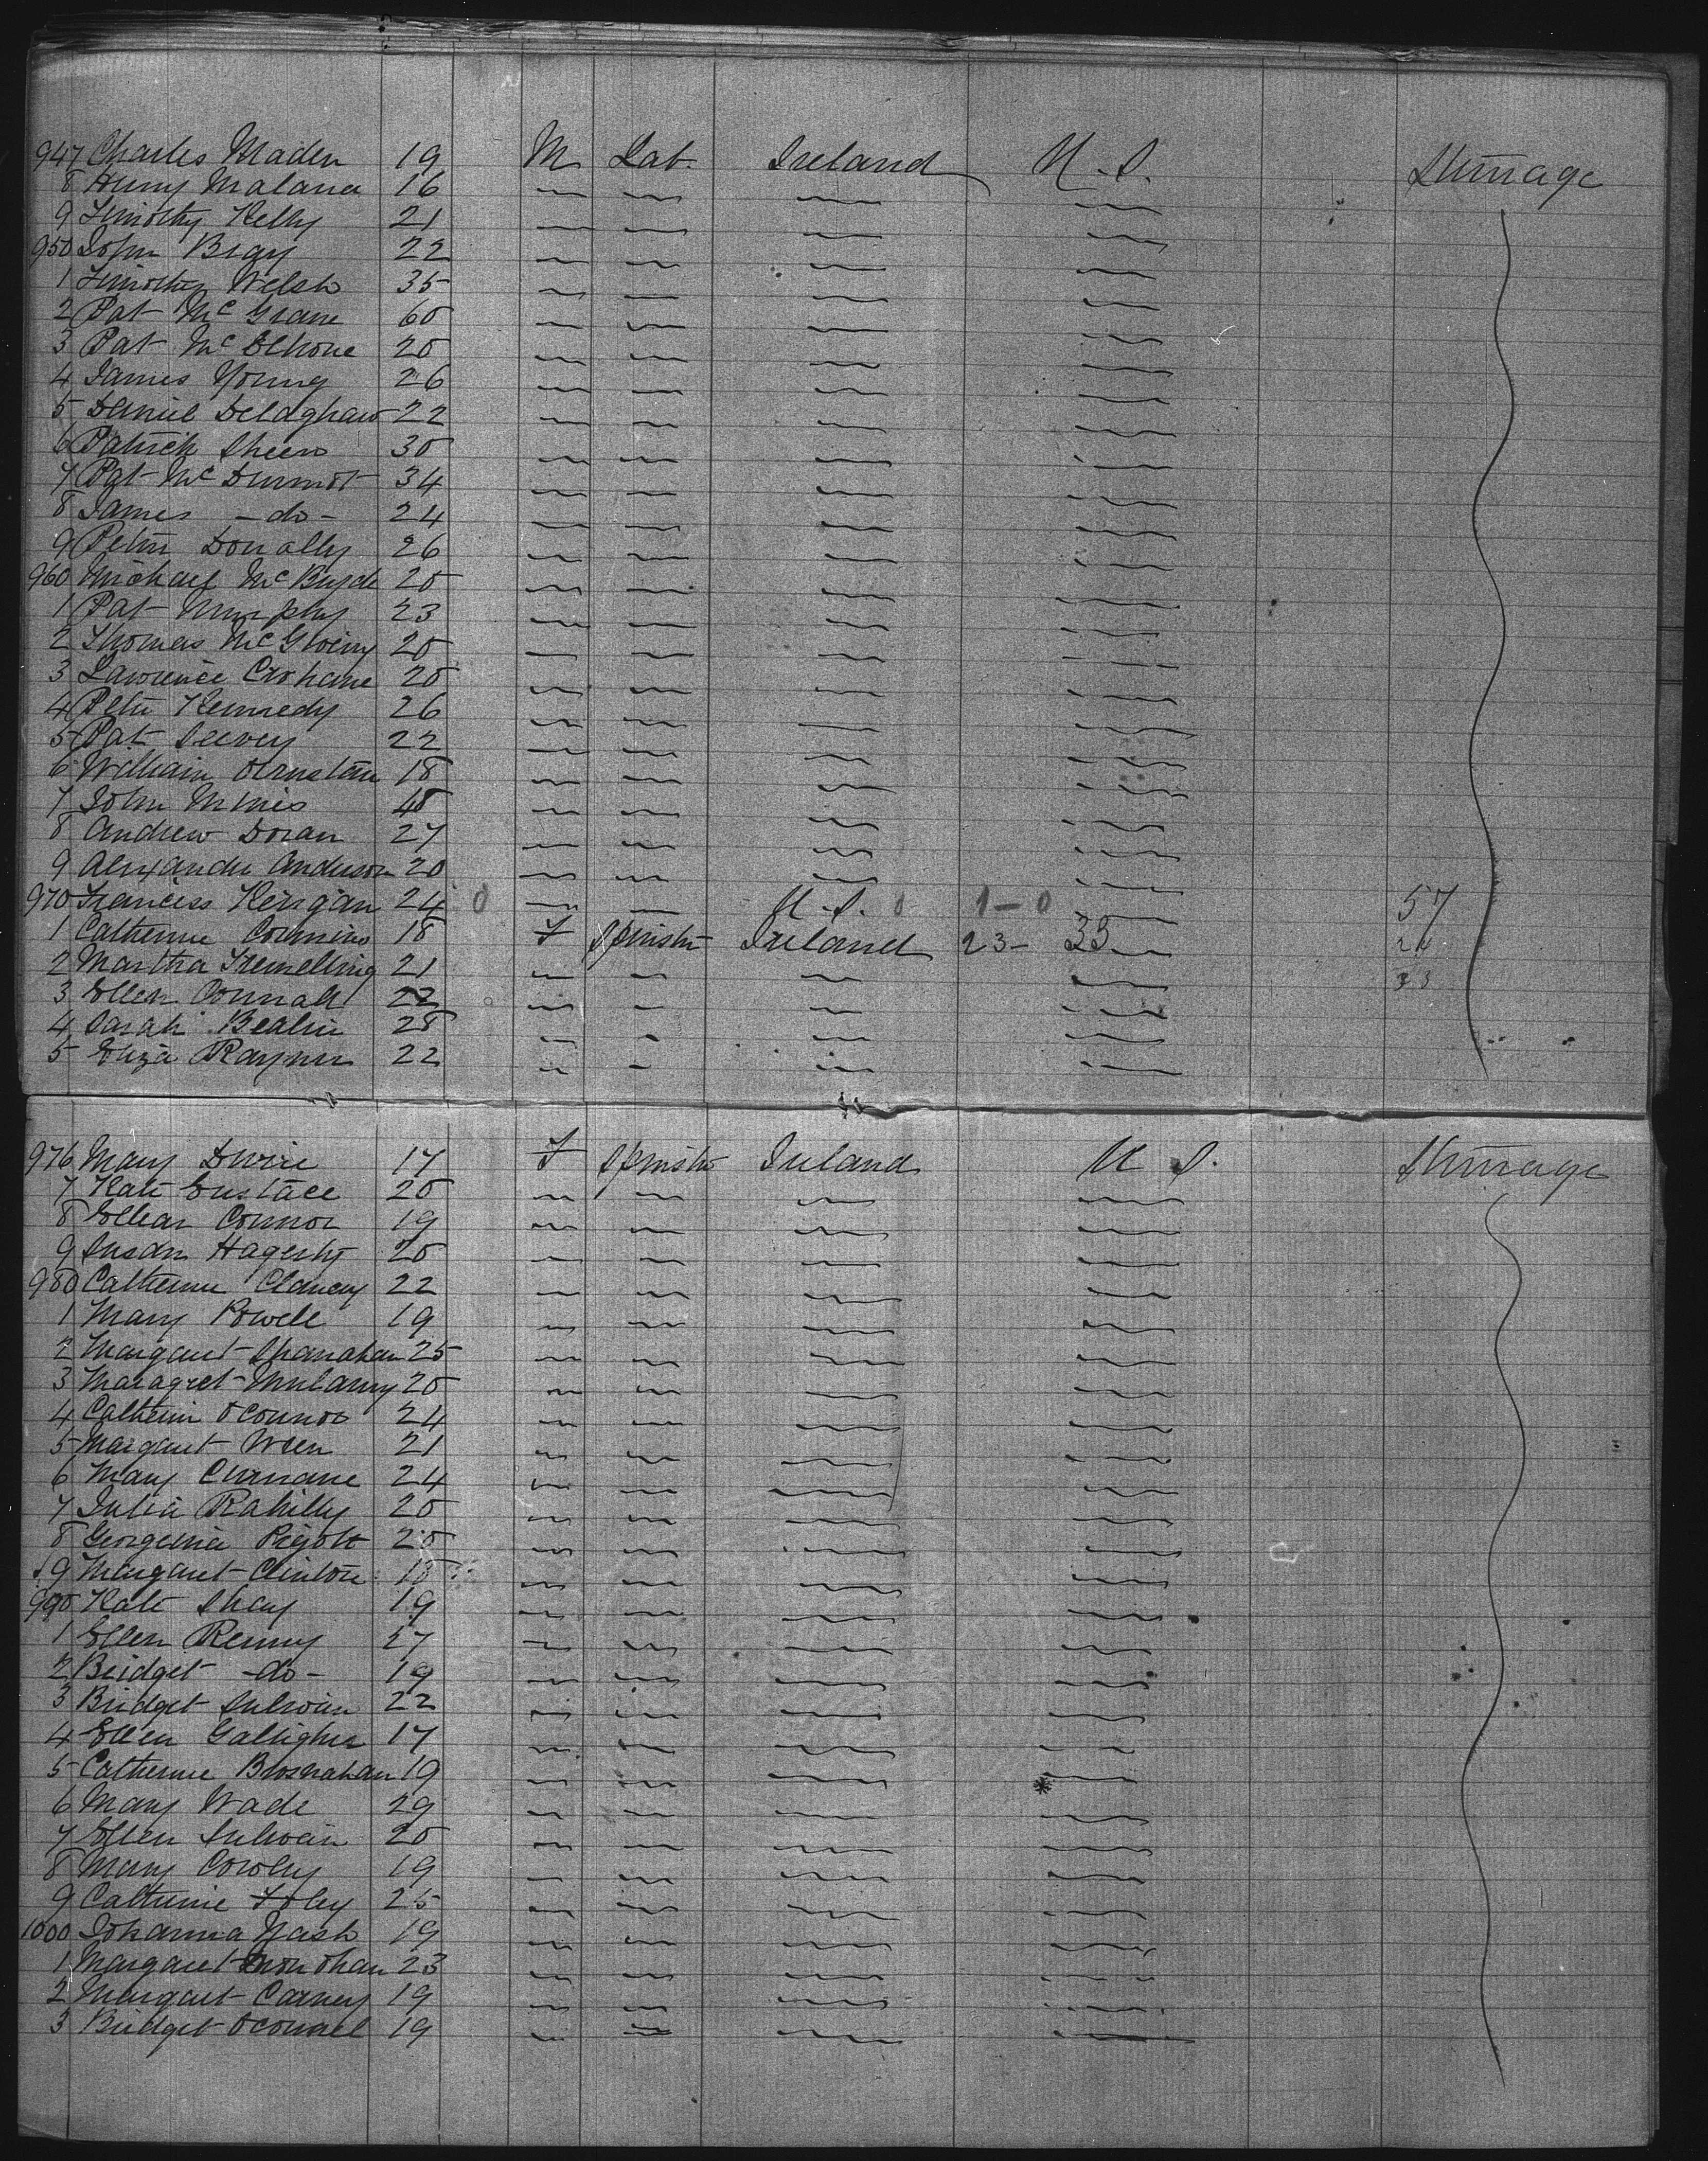 947 Charles Maden 19 M Lab. Ireland U.S. Steerage
8 Henry Malana 16
9 Timothy Kelly 21
950 John Bray 22
1 Timothy Welsh 35
2 Pat McGrane 60
3 Pat McElhone 20
4 James Young 26
5 Daniel 22
6 Patrick Sheen 30
7 Pat McDurmot 34
8 James -do- 24
9 Peter Donally 26
960 Michael McBryde 20
1 Pat Murphy 23
2 Thomas 20
3 Lawrence Crohane 20
4 Peter Kennedy 26
5 Pat 22
6 William 18
7 John 40
8 Andrew Doran 27
9 Alexander Anderson 20
970 Franciss Kerigan 24 0 U.S. 0 1-0 57
1 Catherine 18 F Spinster Ireland 23- 33 24
2 Martha Tremelling 21 33
3 Ellen 22
4 Sarah 28
5 Eliza Raynor 22
976 Mary Dwire 17 F Spinster Ireland U S. Steerage
7 Kate Eustace 20
8 Ellean Connor 19
9 Susan Hagerty 20
980 Catherine Clancey 22
1 Mary Powell 19
2 Margaret Shanahan 25
3 Maragret Mulamy 20
4 Catherin OConnor 24
5 Margaret 21
6 Mary 24
7 Julia Rahilly 20
8 Georgenia Pigott 20
9 Margaret Clinton 18
990 Kate Shay 19
1 Ellen Renny 27
2 Bridget -do- 19
3 Bridget Sulivan 22
4 Ellen Galligher 17
5 Catherine Brosnahan 19
6 Mary Wade 29
7 Ellen Sulivan 20
8 Mary Cowley 19
9 Catherine Foley 25
1000 Johanna Nash 19
1 Margaret Monohan 23
2 Margaret Carney 19
3 Bridget OConnel 19